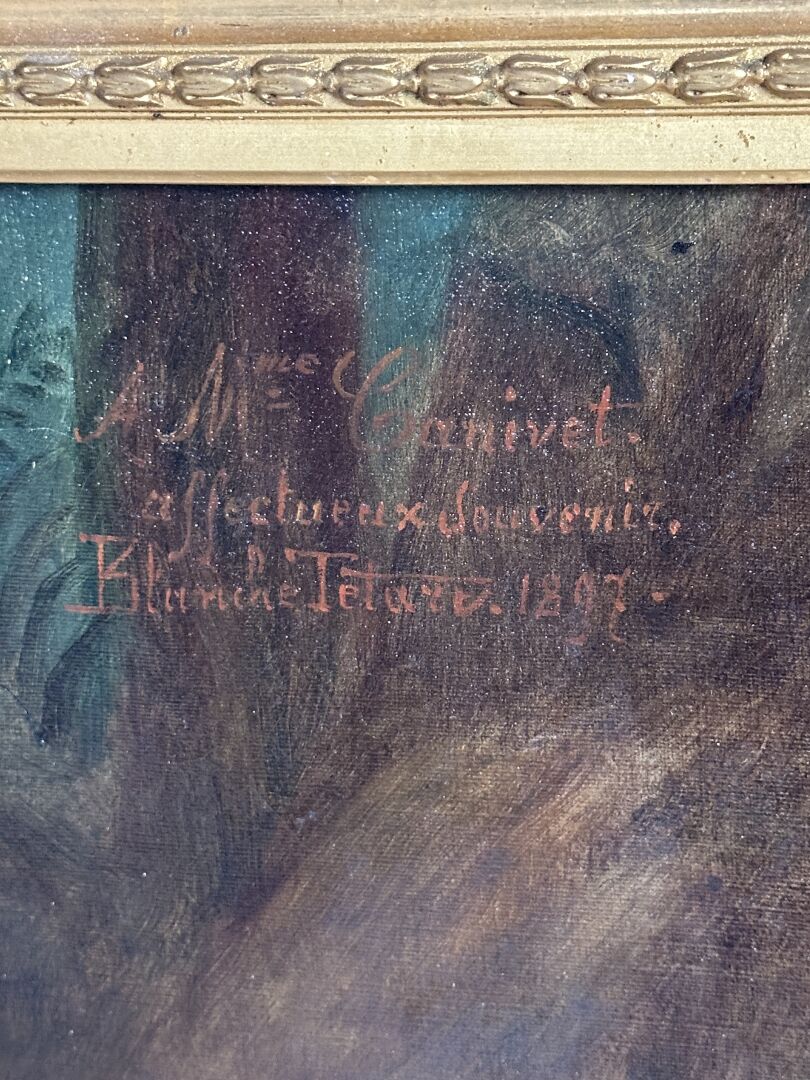 A Mme Canivet.
affectueux souvenir.
Blanche Tétart. 1897.